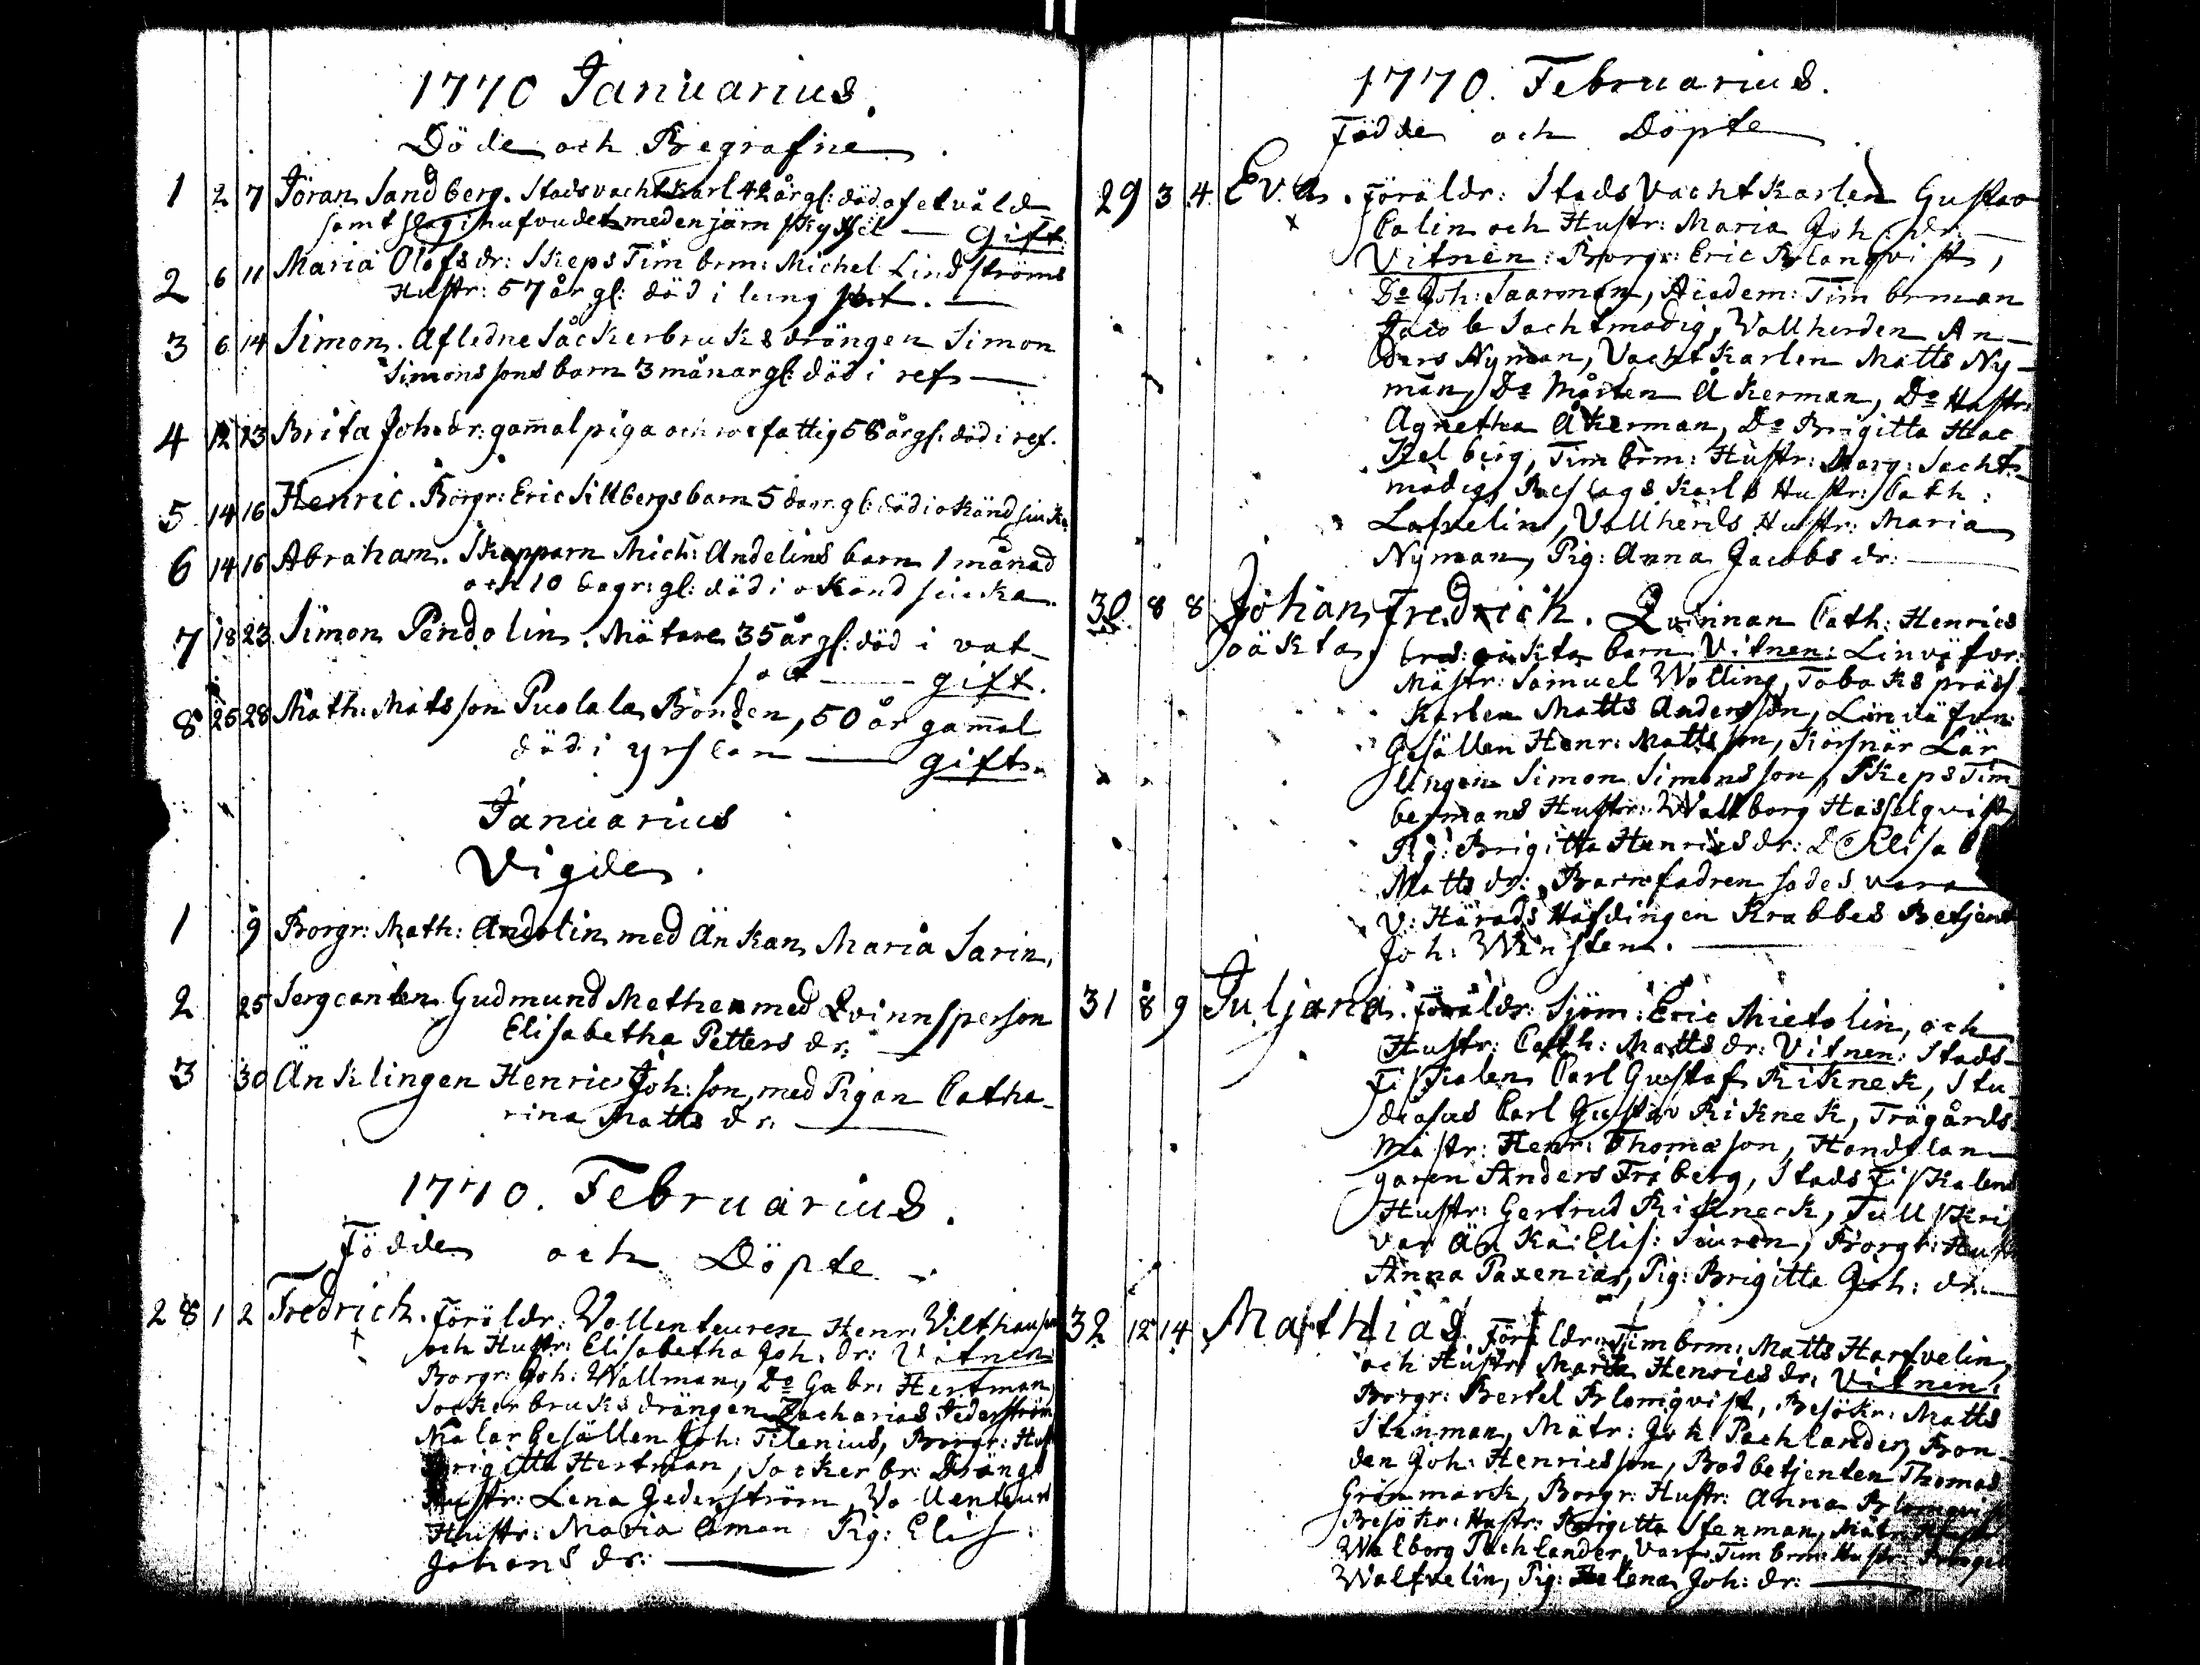 1770 Januarius.
Döde och Begrafne.
1 2 7 Jöran Sandberg. Stadsvachtkarl 42 år gl: död af etvåld
samt slag i hufvudet med en järn skyffel — Gift.
2 6 11 Maria Olofsdr: Skeps Timbrm: Michel Lindströms
Hustr: 57 år gl: död i lung sot. —
3 6 14 Simon. Afledne Såckerbruksdrängen Simon
Simonssons barn 3 månar gl: död i ref —
4 12 23 Brita Joh: dr: gam̄al piga och fattig 58 år gl: död i ref.
5 14 16 Henric. Borgr: Eric Sillbergs barn 5 dagr gl: död i okänd siuka
6 14 16 Abraham. Skepparn Mich: Andelins barn 1 månad
och 10 dagr: gl: död i okänd siucka.
7 18 23 Simon Pendolin. Mätare 35 år gl: död i vat-
sot — gift.
8 25 28 Math: Matsson Puolala Bonden, 50 år gam̄al
död i yrslan — gift.
Januarius
Vigde.
1 9 Borgr: Math: Andolin med Änkan Maria Sarin,
2 25 Sergeanten Gudmund Methen med Qvinnsperson
Elisabetha Petters dr: —
3 30 Änklingen Henric Joh: son, med Pigan Catha-
rina Matts dr: —
1770. Februarius.
Födde och Döpte
28 1 2 Fredrich. Föräldr: Vollenteuren Henr: Vilthausen
och Hustr: Elisabetha Joh: dr: Vitnen
Borgr: Joh: Wallman, Do Gabr: Hertman,
Sockerbruksdrängen Zacharias Federström
Målar Gesällen Joh: Tilenius, Borgr: Hust
Brigitta Hertman, Sockerbr: Drängs
Hustr: Lena Federström, Vollenteurs
Hustr: Maria Åman Pig: Elis:
Johans dr: —
1770. Februarius.
Födde och Döpte
29 3 4 Eva. Föräldr: StadsVachtKarlen Gustav
Calin och Hustr: Maria Joh: dr: —
Vitnen: Borgr: Eric Blanqvist,
Do Joh: Saarman, Academ: Timbrman
Jacob Sachtmodig, Vallherden An-
ders Nyman, Vacht Karlen Matts Ny-
man, Do Mårten Åkerman, Do Hustr:
Agnetha Åkerman, Do Brigitta Hac
kelberg, Timbrm: Hustr: Marg: Sacht-
modig, Karls Hustr: Cath:
Lafvelin, Vallherds Hustr: Maria
Nyman, Pig: Anna Jacobs dr: —
30 8 8 Johan Fredrich. Qvinnan Cath: Henrics
oäkta drs: oäkta barn Vitnen: Linväfvr:
Mästr: Samuel Wolling, Tobaks präss
Karlen Matts Andersson, Linväfvar
Gesällen Henr: Mattsson, Körsnär Lär-
lingen Simon Simonsson, Skeps Tim-
bermans Hustr: Wallborg Hasselqvist
Pig: Brigitta Henricsdr: Do Elisab
Matts dr: Barnfadren sades vara
V: Härads Höfdingen Krabbes Betjent
Joh: Winsten. —
31 8 9 Juljana. Föräldr: Sjöm: Eric Mietolin, och
Hustr: Cath: Matts dr: Vitnen: Stads-
Fiskalen Carl Gustaf Kiknek, Stu-
diosus Carl Gustav Kiknek, Trägårds-
Mästr: Henr: Thomæson, Handtlan-
garen Anders Friberg, Stads Fiskalens
Hustr: Gertrud Kiknek, Tullskri
var Änka: Elis: Siuren, Borgr: Hustr
Anna Paxenia, Pig: Brigitta Joh: dr: —
32 12 14 Matthias. Föräldr: Timbrm: Matts Harfvelin,
och Hustr: Maria Henrics dr: Vitnen:
Borgr: Bertel Blomqvist, Besökr: Matts
Stenman, Mätr: Joh: Pachlander, Bon-
den Joh: Henricsson, Bodbetjenten Thomas
Grönmark, Borgr: Hustr: Anna Blomqvist
Besökr: Hustr: Brigitta Stenman, Mätr: Hustr:
Walborg Pachlander, Varfs Timbrm: Hustr:
Walfvelin, Pig: Helena Joh: dr: —